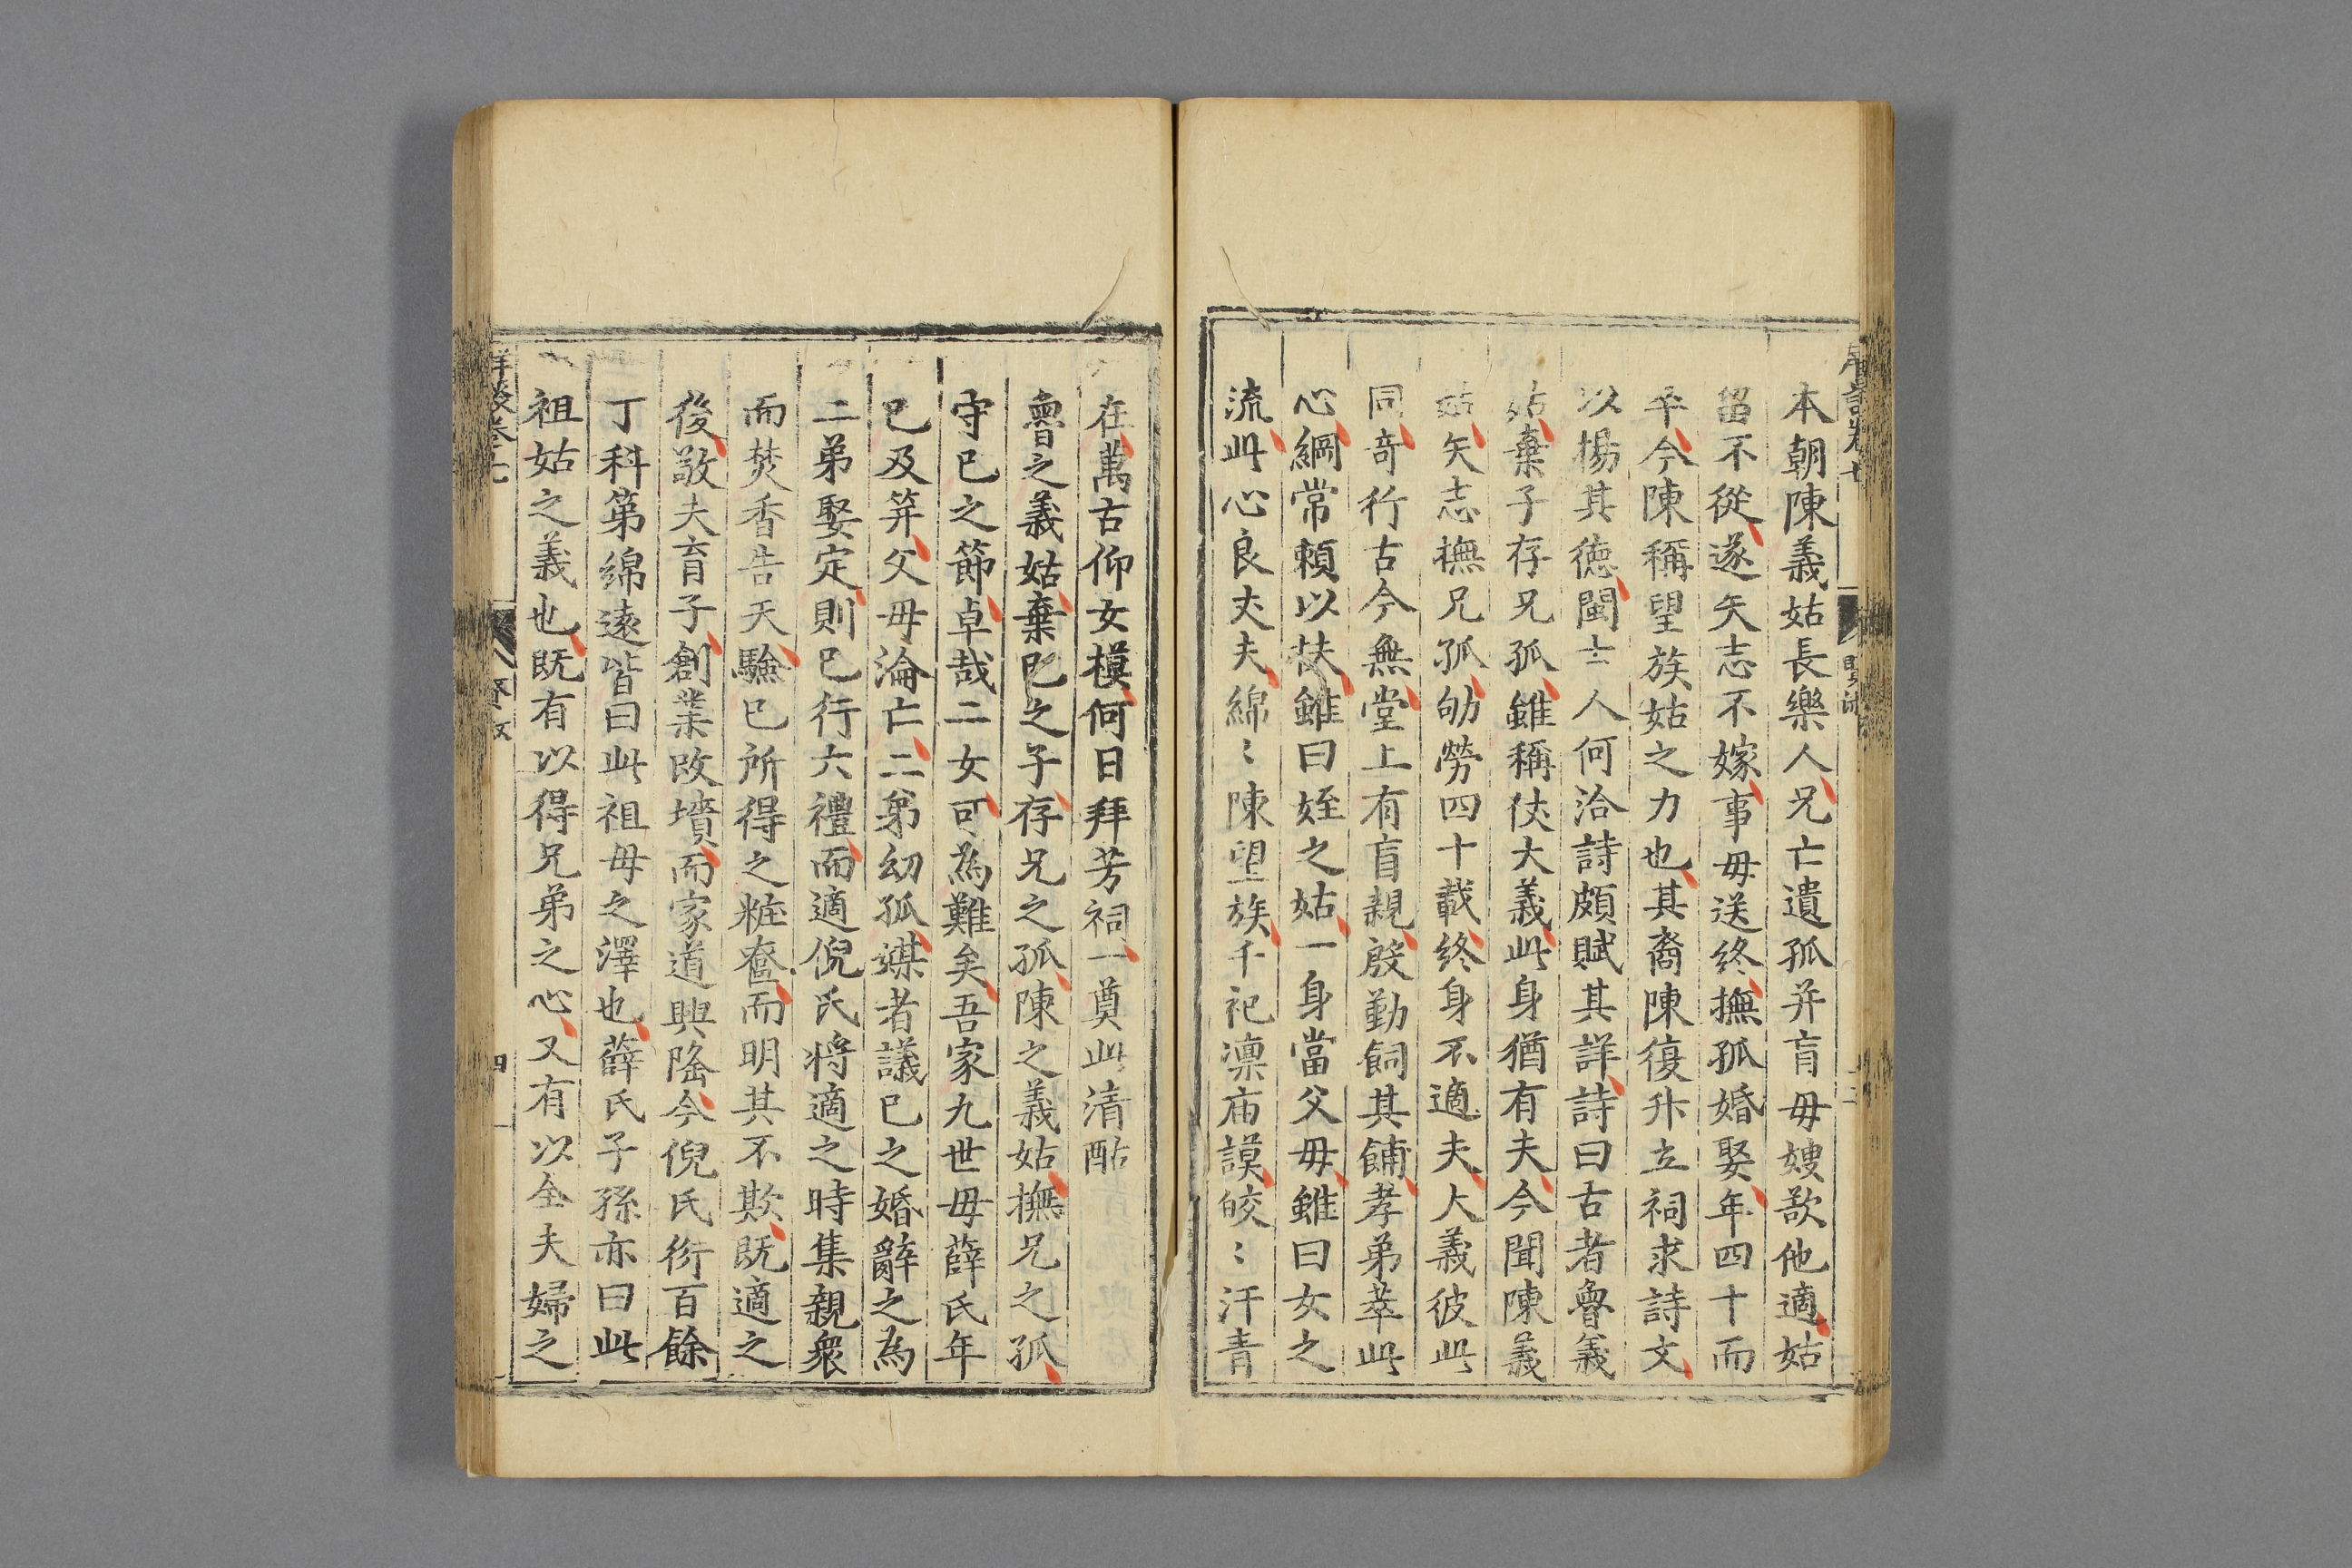 本朝陳義姑長樂人兄亡遺孤并肓毋嫂歆他適姑
留不從遂矢志不嫁事毋送終撫孤婚娶年四十而
卒今陳稱望族姑之力也其裔陳復升立祠求詩文
以揚其德閩士人何洽詩頗賦其詳詩曰古者魯義
姑棄子存兄孤雖稱仗大義此身猶有夫今聞陳義
姑矢志撫兄孤劬勞四十載終身不適夫大義彼此
同竒行古今無堂上有盲親殷勤飼其餔孝弟萃此
心綱常頼以扶雖曰姪之姑一身當父毋雖曰女之
流此心良丈夫綿〻陳望族千祀凛庙謨皎〻汗青
在萬古仰女模何日拜芳祠一奠此清酤
魯之義姑棄己之子存兄之孤陳之義姑撫兄之孤
守已之節卓哉二女可為難矣吾家九世毋薛氏年
已及笄父毋淪亡二弟幼孤媒者議已之婚辭之為
二弟娶定則已行六禮而適倪氏將適之時集親衆
而焚香告天驗已所得之粧奩而明其不欺既適之
後敬夫育子創業改墳而家道興隆今倪氏衍百餘
丁科第綿遠皆曰此祖毋之澤也薛氏子孫亦曰此
祖姑之義也既有以得兄弟之心又有以全夫婦之
羣談卷七
四